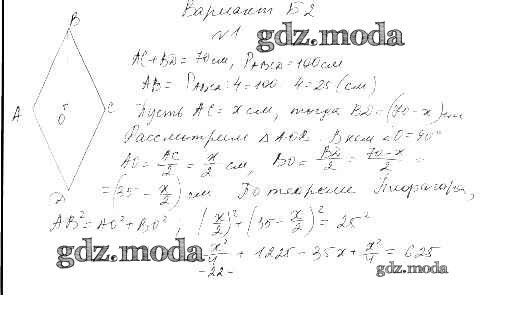 Вариант Б2
№1
gdz.moda
B
A
C
O
D
AC+BD=70см, P_ABCD=100см
AB= P_ABCD:4=100:4=25(см)
Пусть AC=x см, тогда BD=(70-x)см
Рассмотрим △AOB. В нем ∠O=90°
AO=AC/2=x/2 см, BO=BD/2=70-x/2=
=(35-x/2)см По теореме Пифагора,
AB²=AO²+BO², (x/2)²+(35-x/2)²=25²
gdz.moda
x²/4+1225-35x+x²/4=625
gdz.moda
-22-